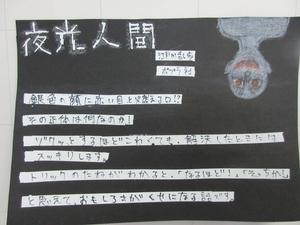 夜光人間
江戸川乱歩
ポプラ社
銀色の顔に赤い目と燃える口!?
その正体は何なのか!
ゾクッとするほどこわくても、解決したときには
スッキリします。
トリックのたねがわかると、「なるほど!」「そっか!」
と思えて、おもしろさがくせになる話です。